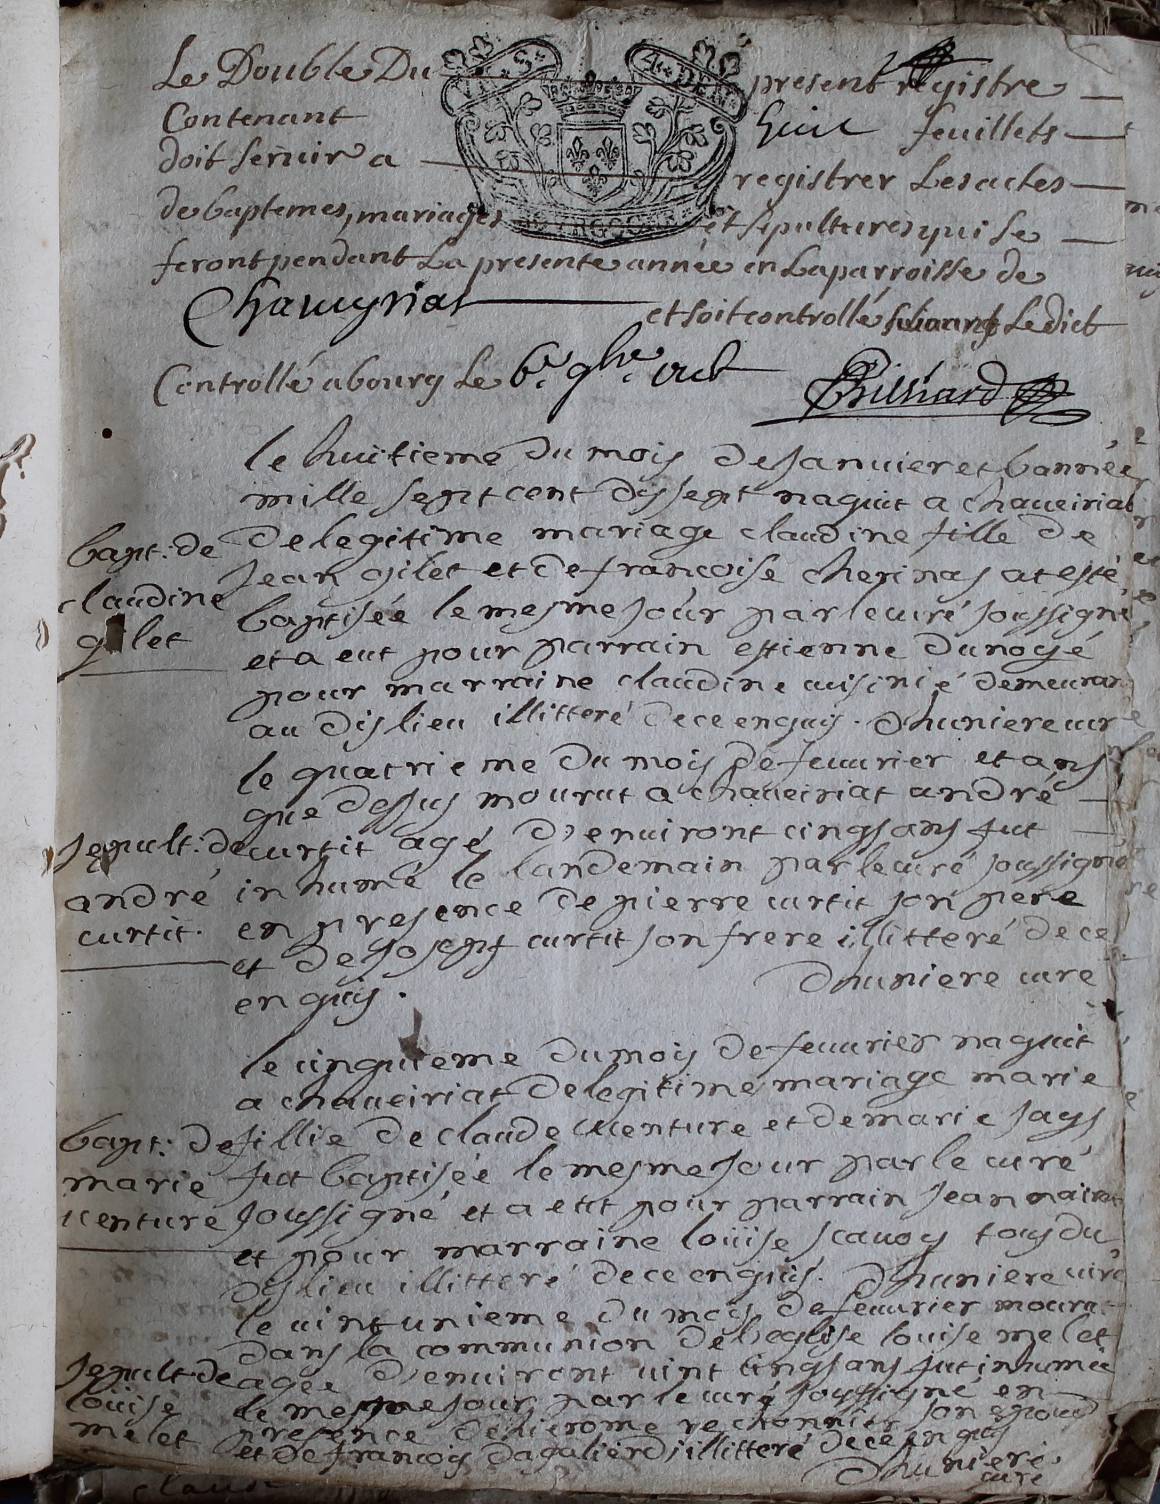 Le Double Du present registre
Contenant huit feuillets
doit servir a registrer Les actes
de baptemes, mariages et sepultures qui se
feront pendant La presente année en La parroisse de
Chaveyriat et soit controllé suivant Ledict
Controllé a bourg Le 6e. 9bre.
Billiard
le huitieme du mois de Janvier et l'année
mille sept cent dis sept naquit a chaveiriat
de legitime mariage claudine fille de
Jean gilet et de francoise cherinas at esté
baptisée le mesme Jour par le curé soussigné
et a eut pour parrain estienne dunoyé
pour marraine claudine cuisinié demeuran
au dis lieu illitteré de ce enquis. Dhuniere curé
bapt: de
claudine
gilet
le quatrieme du mois de fevvrier et ans
que dessus mourut a chaveiriat andré
curtit agé d'environt cinq ans fut
inhumé le landemain par le curé soussigné
en presence de pierre curtit son pere
et de Joseph curtit son frere illitteré de ce
enquis. Dhuniere curé
sepult: de
andré
curtit.
le cinquieme du mois de fevvrier naquit
a chaveiriat de legitime mariage marie
fillie de claude venture et de marie Jays
fut baptisée le mesme Jour par le curé
soussigné et a eut pour parrain Jean
et pour marraine loüise scavoy tous du
dis lieu illitteré de ce enquis. Dhuniere curé
bapt: de
marie
venture
le vint unieme du mois de fevvrier mourut
dans la communion de l'eglise louise melet
agée d'environt vint cinq ans fut inhumée
le mesme Jour par le curé soussigné en
presence de hierome rechonnier son epoux
et de francois dagaliérd illitteré de ce enquis
Dhuniere
curé
sepult: de
loüise
melet